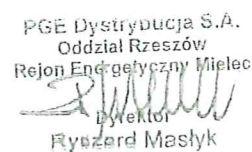 PGE Dystrybucja S.A.
Oddział Rzeszów
Rejon Energetyczny Mielec
Dyrektor
Ryszard Masłyk